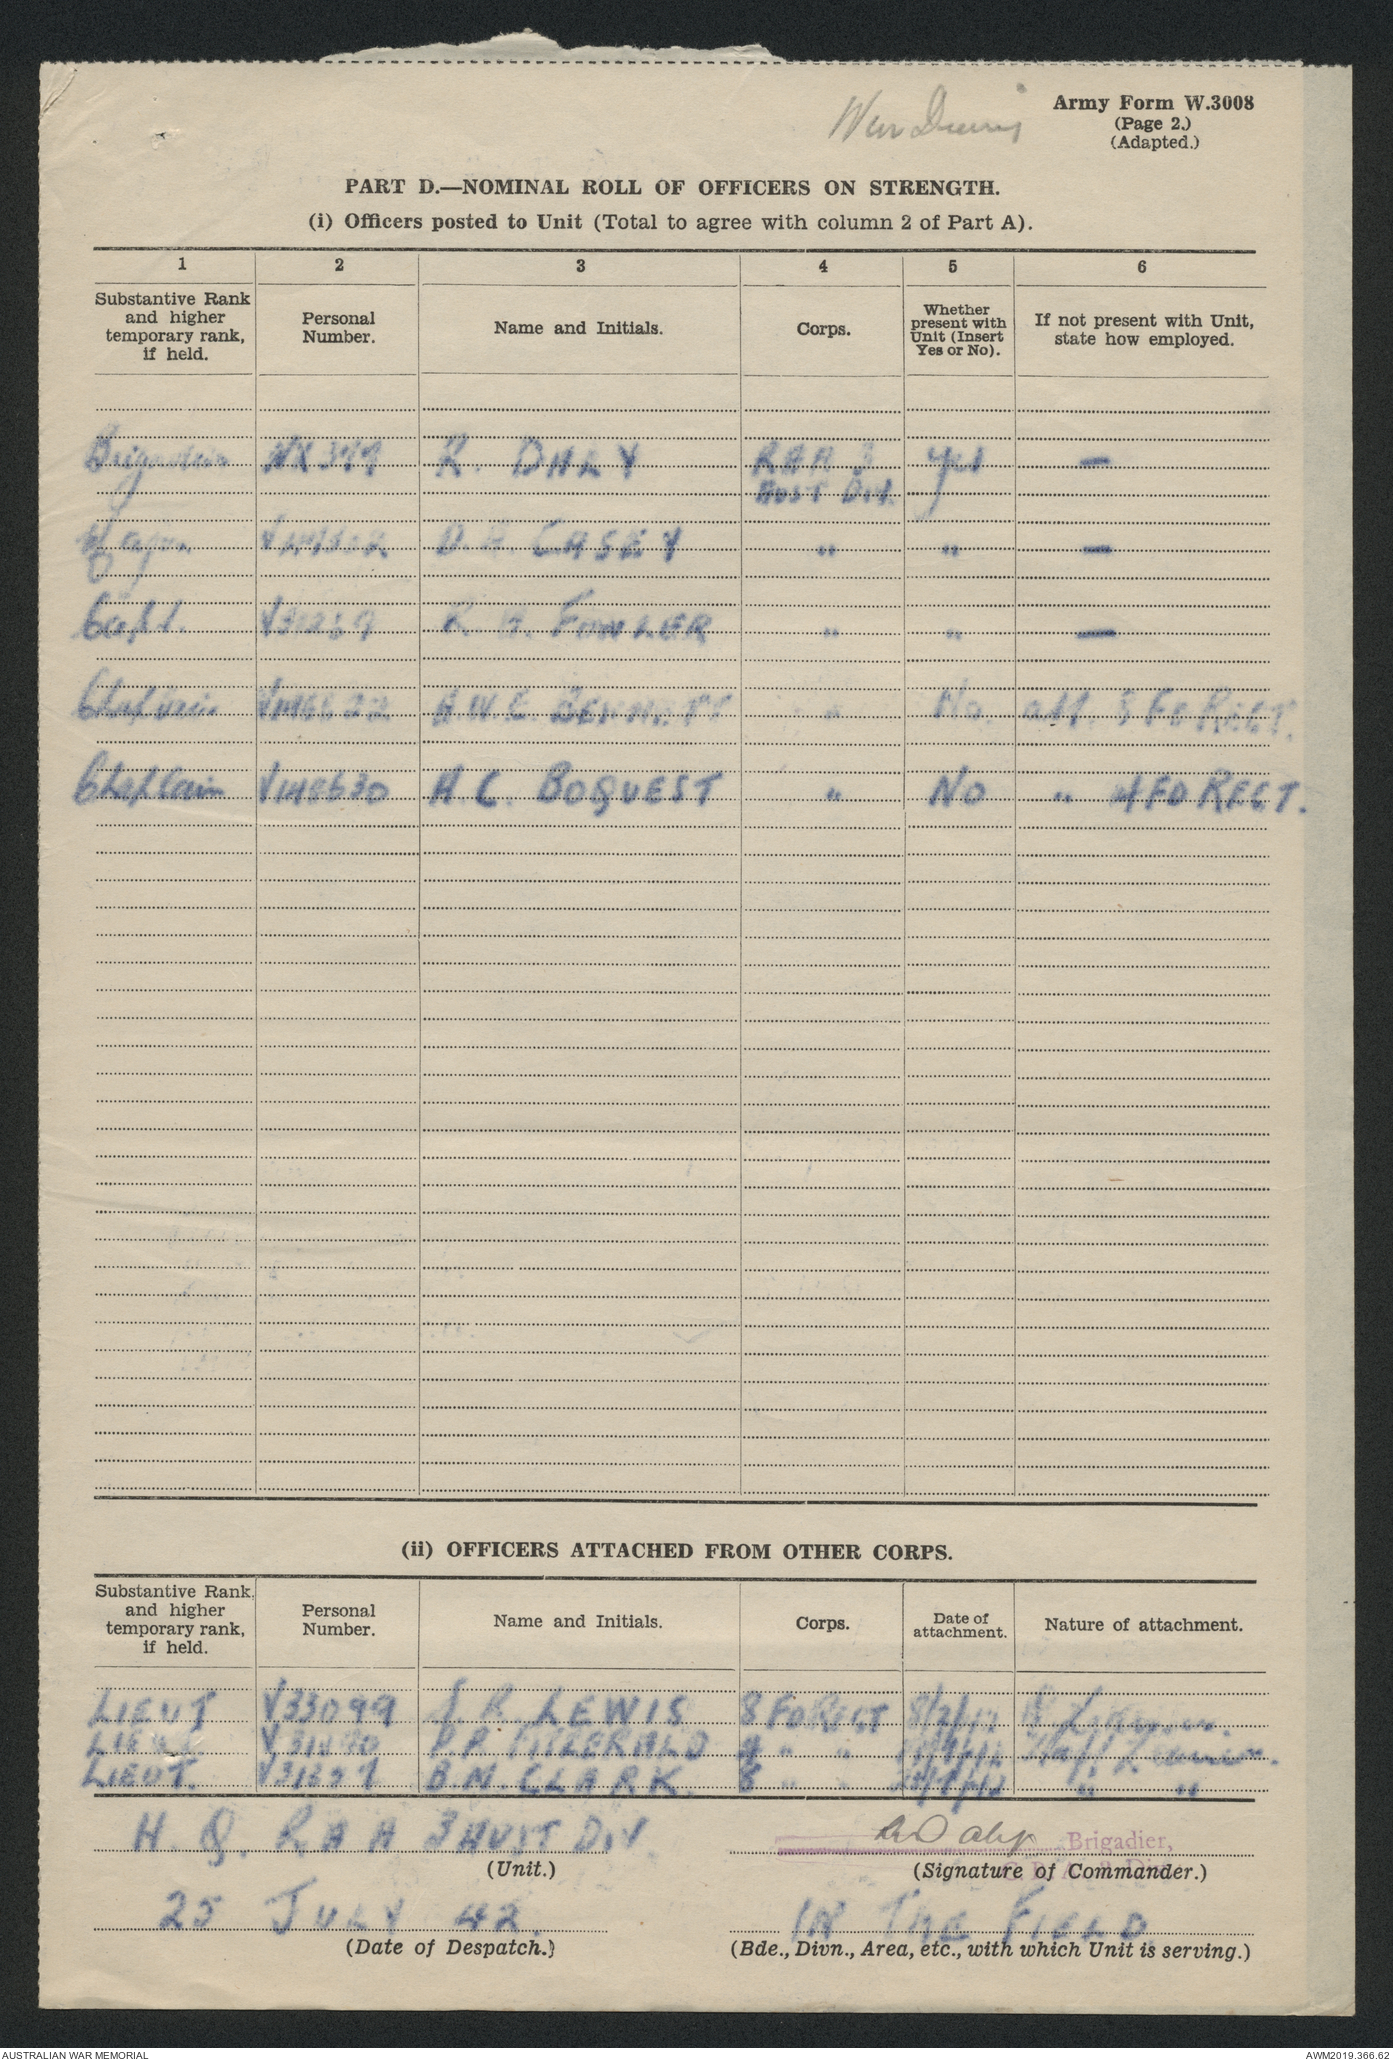 War Diary
Army Form W.3008
(Page 2.)
(Adapted.)
PART D.—NOMINAL ROLL OF OFFICERS ON STRENGTH.
(i) Officers posted to Unit (Total to agree with column 2 of Part A).
1 2 3 4 5 6
Substantive Rank and higher temporary rank, if held. Personal Number. Name and Initials. Corps. Whether present with Unit (Insert Yes or No). If not present with Unit, state how employed.
Brigadier NX377 R. DALY RAA 3 yes —
AUST DIV.
Major CASEY " " —
Capt. R. FOWLER " " —
Chaplain BENNETT " No. att. FD REGT.
Chaplain A C. BOQUEST " No " 4 FD REGT.
(ii) OFFICERS ATTACHED FROM OTHER CORPS.
Substantive Rank, and higher temporary rank, if held. Personal Number. Name and Initials. Corps. Date of attachment. Nature of attachment.
LIEUT V33099 R. LEWIS 8 FD REGT
LIEUT " "
LIEUT. B.M. CLARK. 8 " " " "
H. Q. RAA 3 AUST DIV.
RDaly Brigadier,
(Unit.) (Signature of Commander.)
25 JULY 42. IN THE FIELD
(Date of Despatch.) (Bde., Divn., Area, etc., with which Unit is serving.)
AUSTRALIAN WAR MEMORIAL AWM2019.366.62